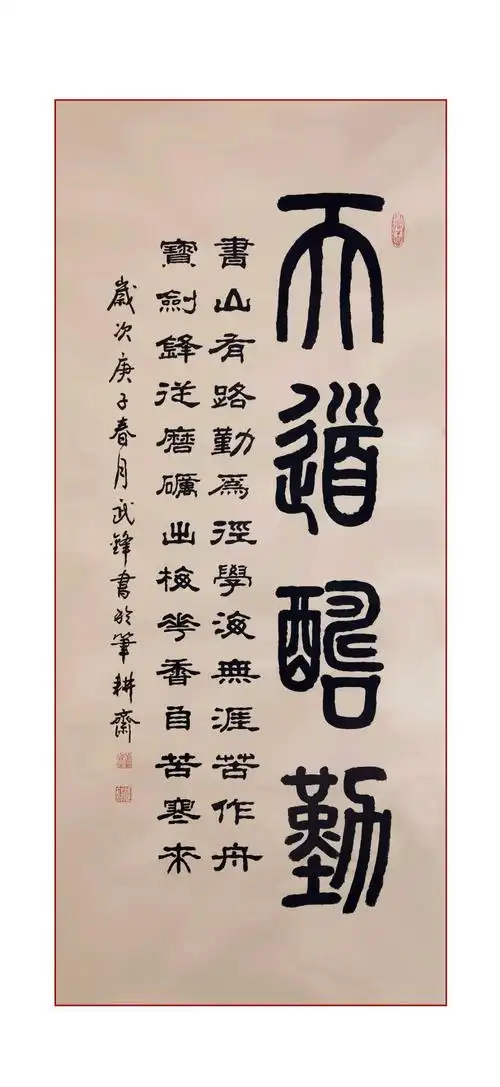 天道酬勤
書山有路勤為徑學海無涯苦作舟
寶劍鋒從磨礪出梅花香自苦寒來
歲次庚子春月武鋒書於筆耕齋